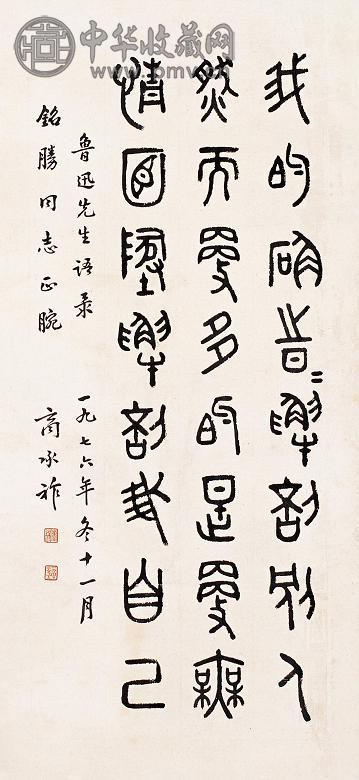 中华收藏网
www.pmv.cn
我的確時〻解剖別人
然而更多的是更無
情面地解剖我自己
魯迅先生语录 一九七六年冬十一月
銘勝同志正腕 商承祚